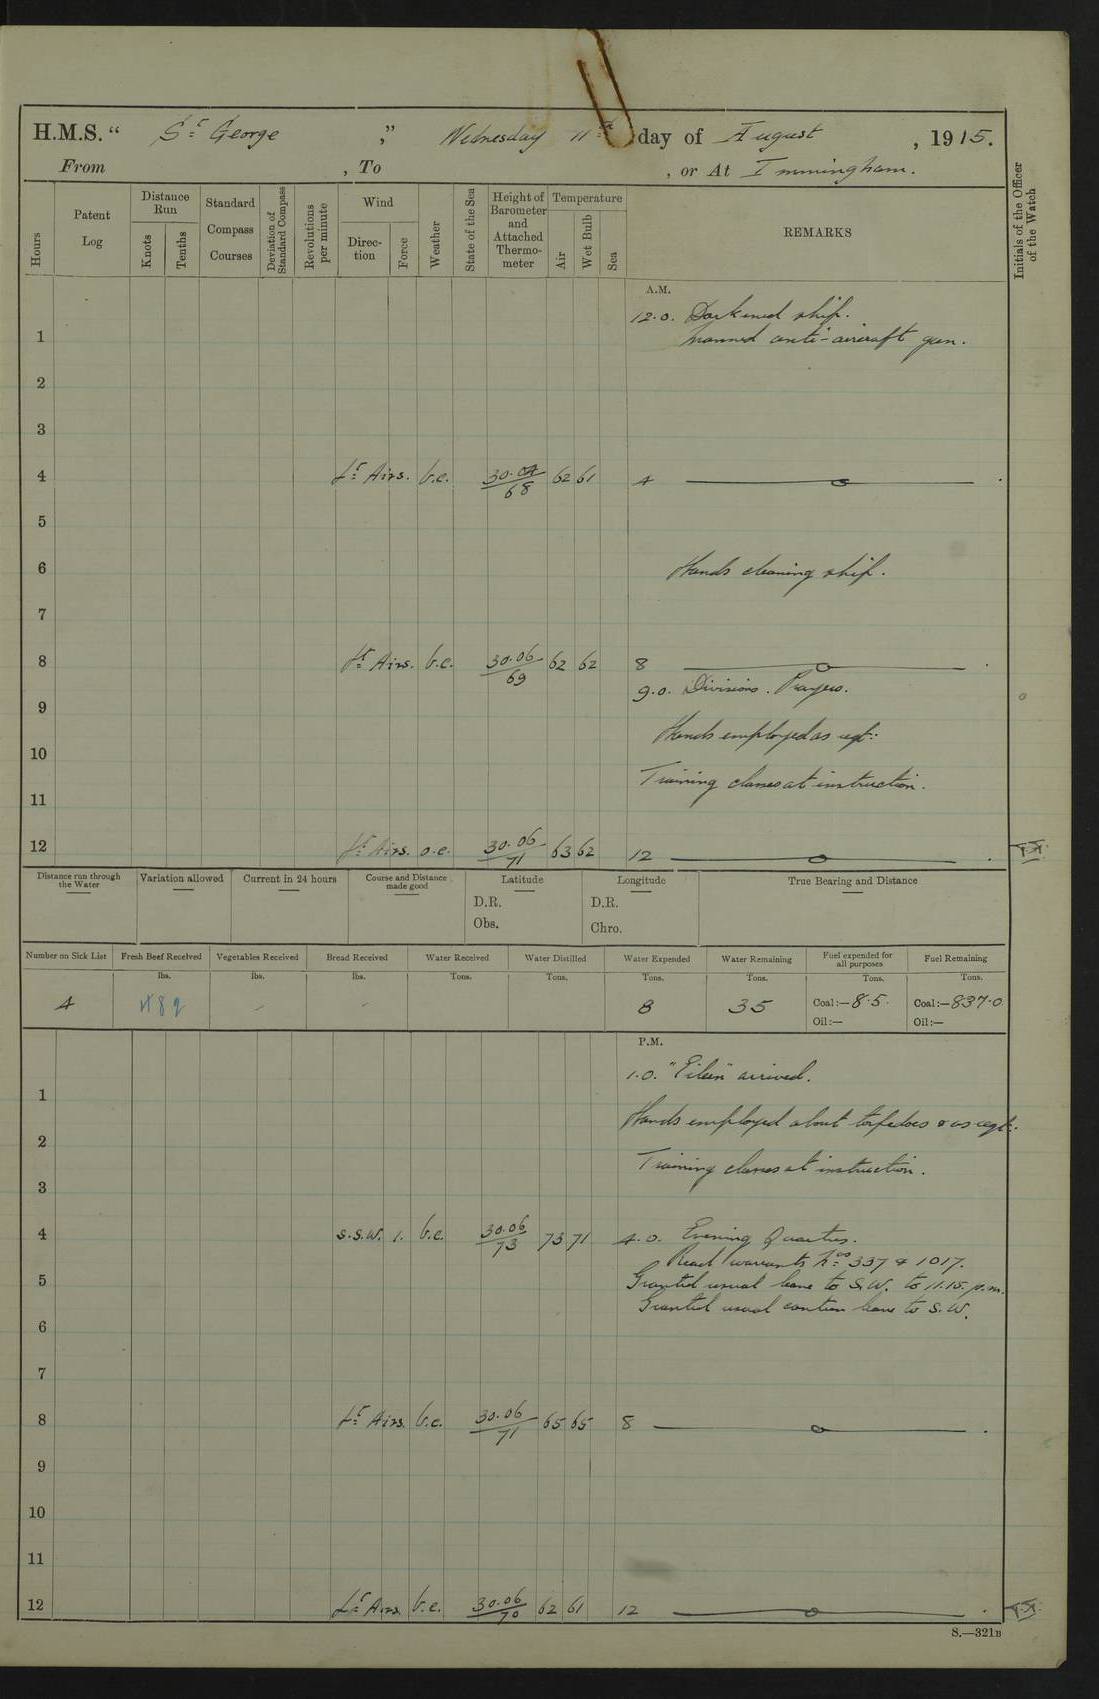 H.M.S. “ Sᵗ George ” Wednesday 11th day of August, 1915.
From , To , or At Immingham.
Hours
Patent Log
Distance Run
Knots
Tenths
Standard Compass Courses
Deviation of Standard Compass
Revolutions per minute
Wind
Direction
Force
Weather
State of the Sea
Height of Barometer and Attached Thermometer
Temperature
Air
Wet Bulb
Sea
REMARKS
Initials of the Officer of the Watch
A.M.
12.0. Darkened ship.
1 Manned anti-aircraft gun.
2
3
4 Lᵗ Airs. b.c. 30.04/68 62 61 4
5
6 Hands cleaning ship.
7
8 Lᵗ Airs. b.c. 30.06/69 62 62 8
9.0. Divisions. Prayers.
9
Hands employed as reqt:
10
Training classes at instruction.
11
12 Lᵗ Airs. o.c. 30.06/71 63 62 12
Distance run through the Water
Variation allowed
Current in 24 hours
Course and Distance made good
Latitude
D.R.
Obs.
Longitude
D.R.
Chro.
True Bearing and Distance
Number on Sick List
Fresh Beef Received
Vegetables Received
Bread Received
Water Received
Water Distilled
Water Expended
Water Remaining
Fuel expended for all purposes
Fuel Remaining
lbs. lbs. lbs. Tons. Tons. Tons. Tons. Tons. Tons.
4 489 - - 8 35 Coal:—8.5. Coal:—837.0
Oil:— Oil:—
P.M.
1.0. "Eileen" arrived.
1
Hands employed about torpedoes & as reqt:
2
Training classes at instruction.
3
4 S.S.W. 1. b.c. 30.06/73 73 71 4.0. Evening Quarters.
Read warrants Nos 337 & 1017.
5 Granted usual leave to S.W. to 11.15. p.m.
Granted usual canteen leave to S.W.
6
7
8 Lᵗ Airs. b.c. 30.06/71 65 65 8
9
10
11
12 Lᵗ Airs. b.c. 30.06/70 62 61 12
S.—321B